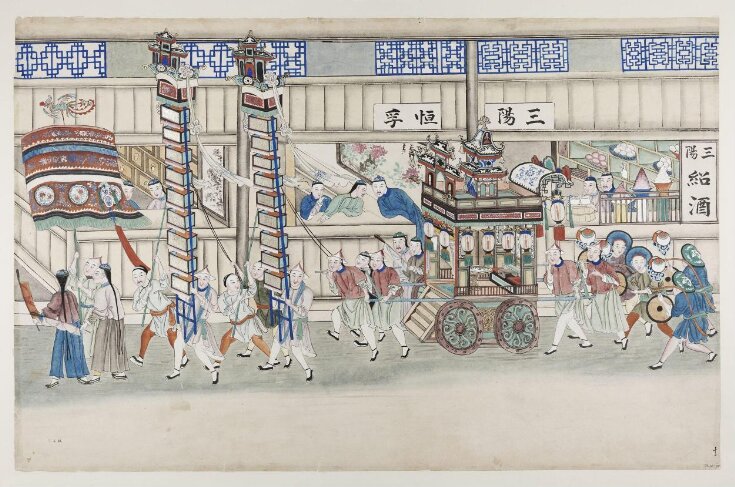 三陽
紹酒
三陽
恒孚